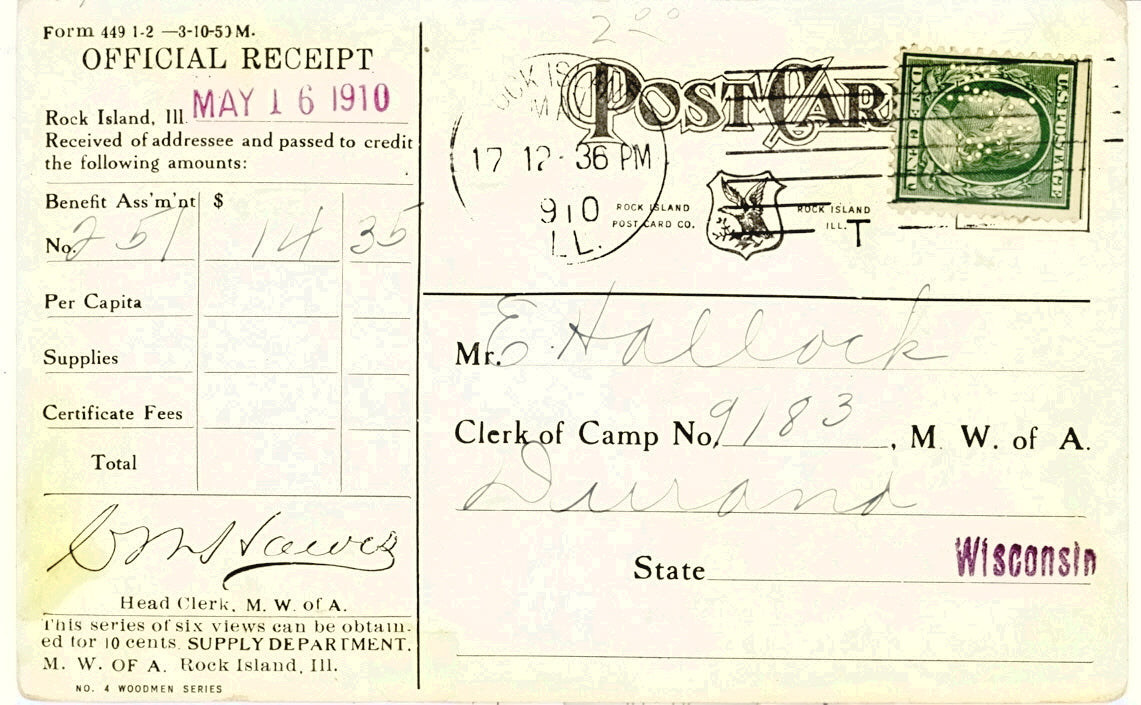 Form 449 1-2 —3-10-50M.
OFFICIAL RECEIPT
Rock Island, Ill. MAY 16 1910
Received of addressee and passed to credit
the following amounts:
Benefit Ass'm'nt $
No. 251 14 35
Per Capita
Supplies
Certificate Fees
Total
Head Clerk, M. W. of A.
This series of six views can be obtain-
ed for 10 cents. SUPPLY DEPARTMENT.
M. W. OF A. Rock Island, Ill.
NO. 4 WOODMEN SERIES
2 00
POST CAR
17 12- 36 PM
910
ILL.
ROCK ISLAND
POST CARD CO.
ROCK ISLAND
ILL.
T
U.S. POSTAGE
Mr. E. Hallock
Clerk of Camp No. 9183, M. W. of A.
Durand
State Wisconsin